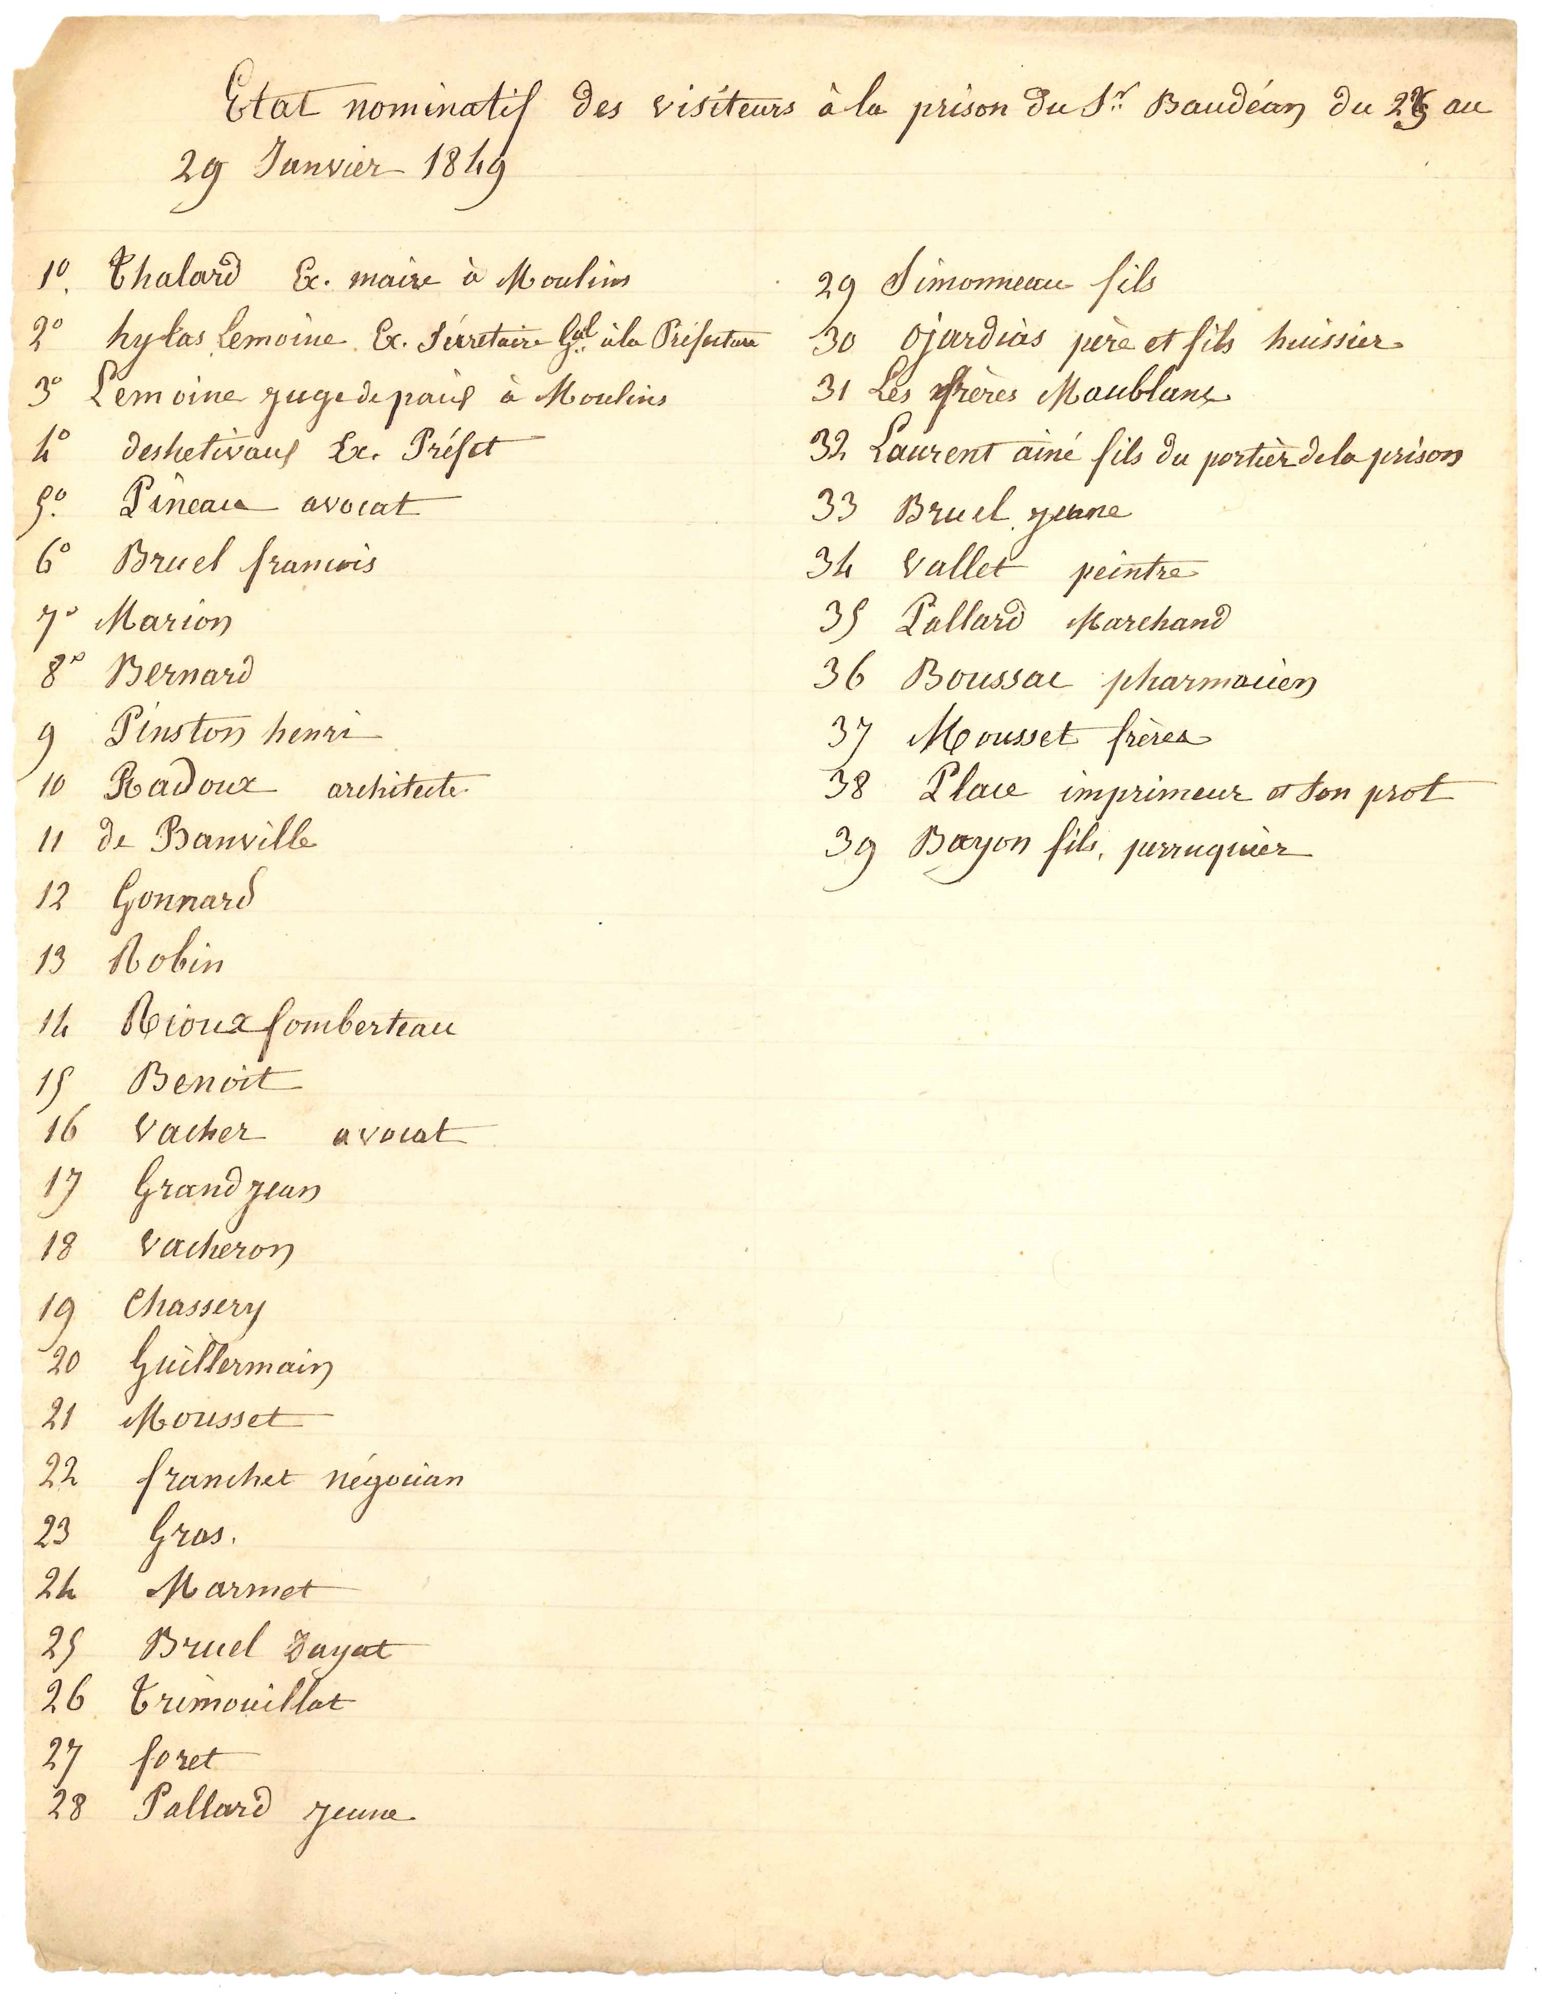 Etat nominatif des visiteurs à la prison du Sr Baudéan du 25 au
29 Janvier 1849
1º. Thalard Ex. maire à Moulins
2º hylas Lemoine Ex. Sécretaire Gal à la Préfecture
3º Lemoine juge de paix à Moulins
4º deshetivaux Ex. Préfet
5º. Pineau avocat
6º Bruel francois
7º Marion
8º Bernard
9 Pinston henri
10 Radoux architecte
11 de Banville
12 Gonnard
13 Robin
14 Rioux fomberteau
15 Benoit
16 Vacher avocat
17 Grand jean
18 Vacheron
19 Chassery
20 Guillermain
21 Mousset
22 franchet négocian
23 Gras.
24 Marmet
25 Bruel Zayat
26 Trimouillat
27 foret
28 Pallard jeune
29 Simonneau fils
30 Ojardias père et fils huissier
31 Les frères Maublanc
32 Laurent ainé fils du portier de la prison
33 Bruel jeune
34 Vallet peintre
35 Pallard Marchand
36 Boussac pharmacien
37 Mousset frères
38 Place imprimeur et son prot
39 Bayon fils, perruquier